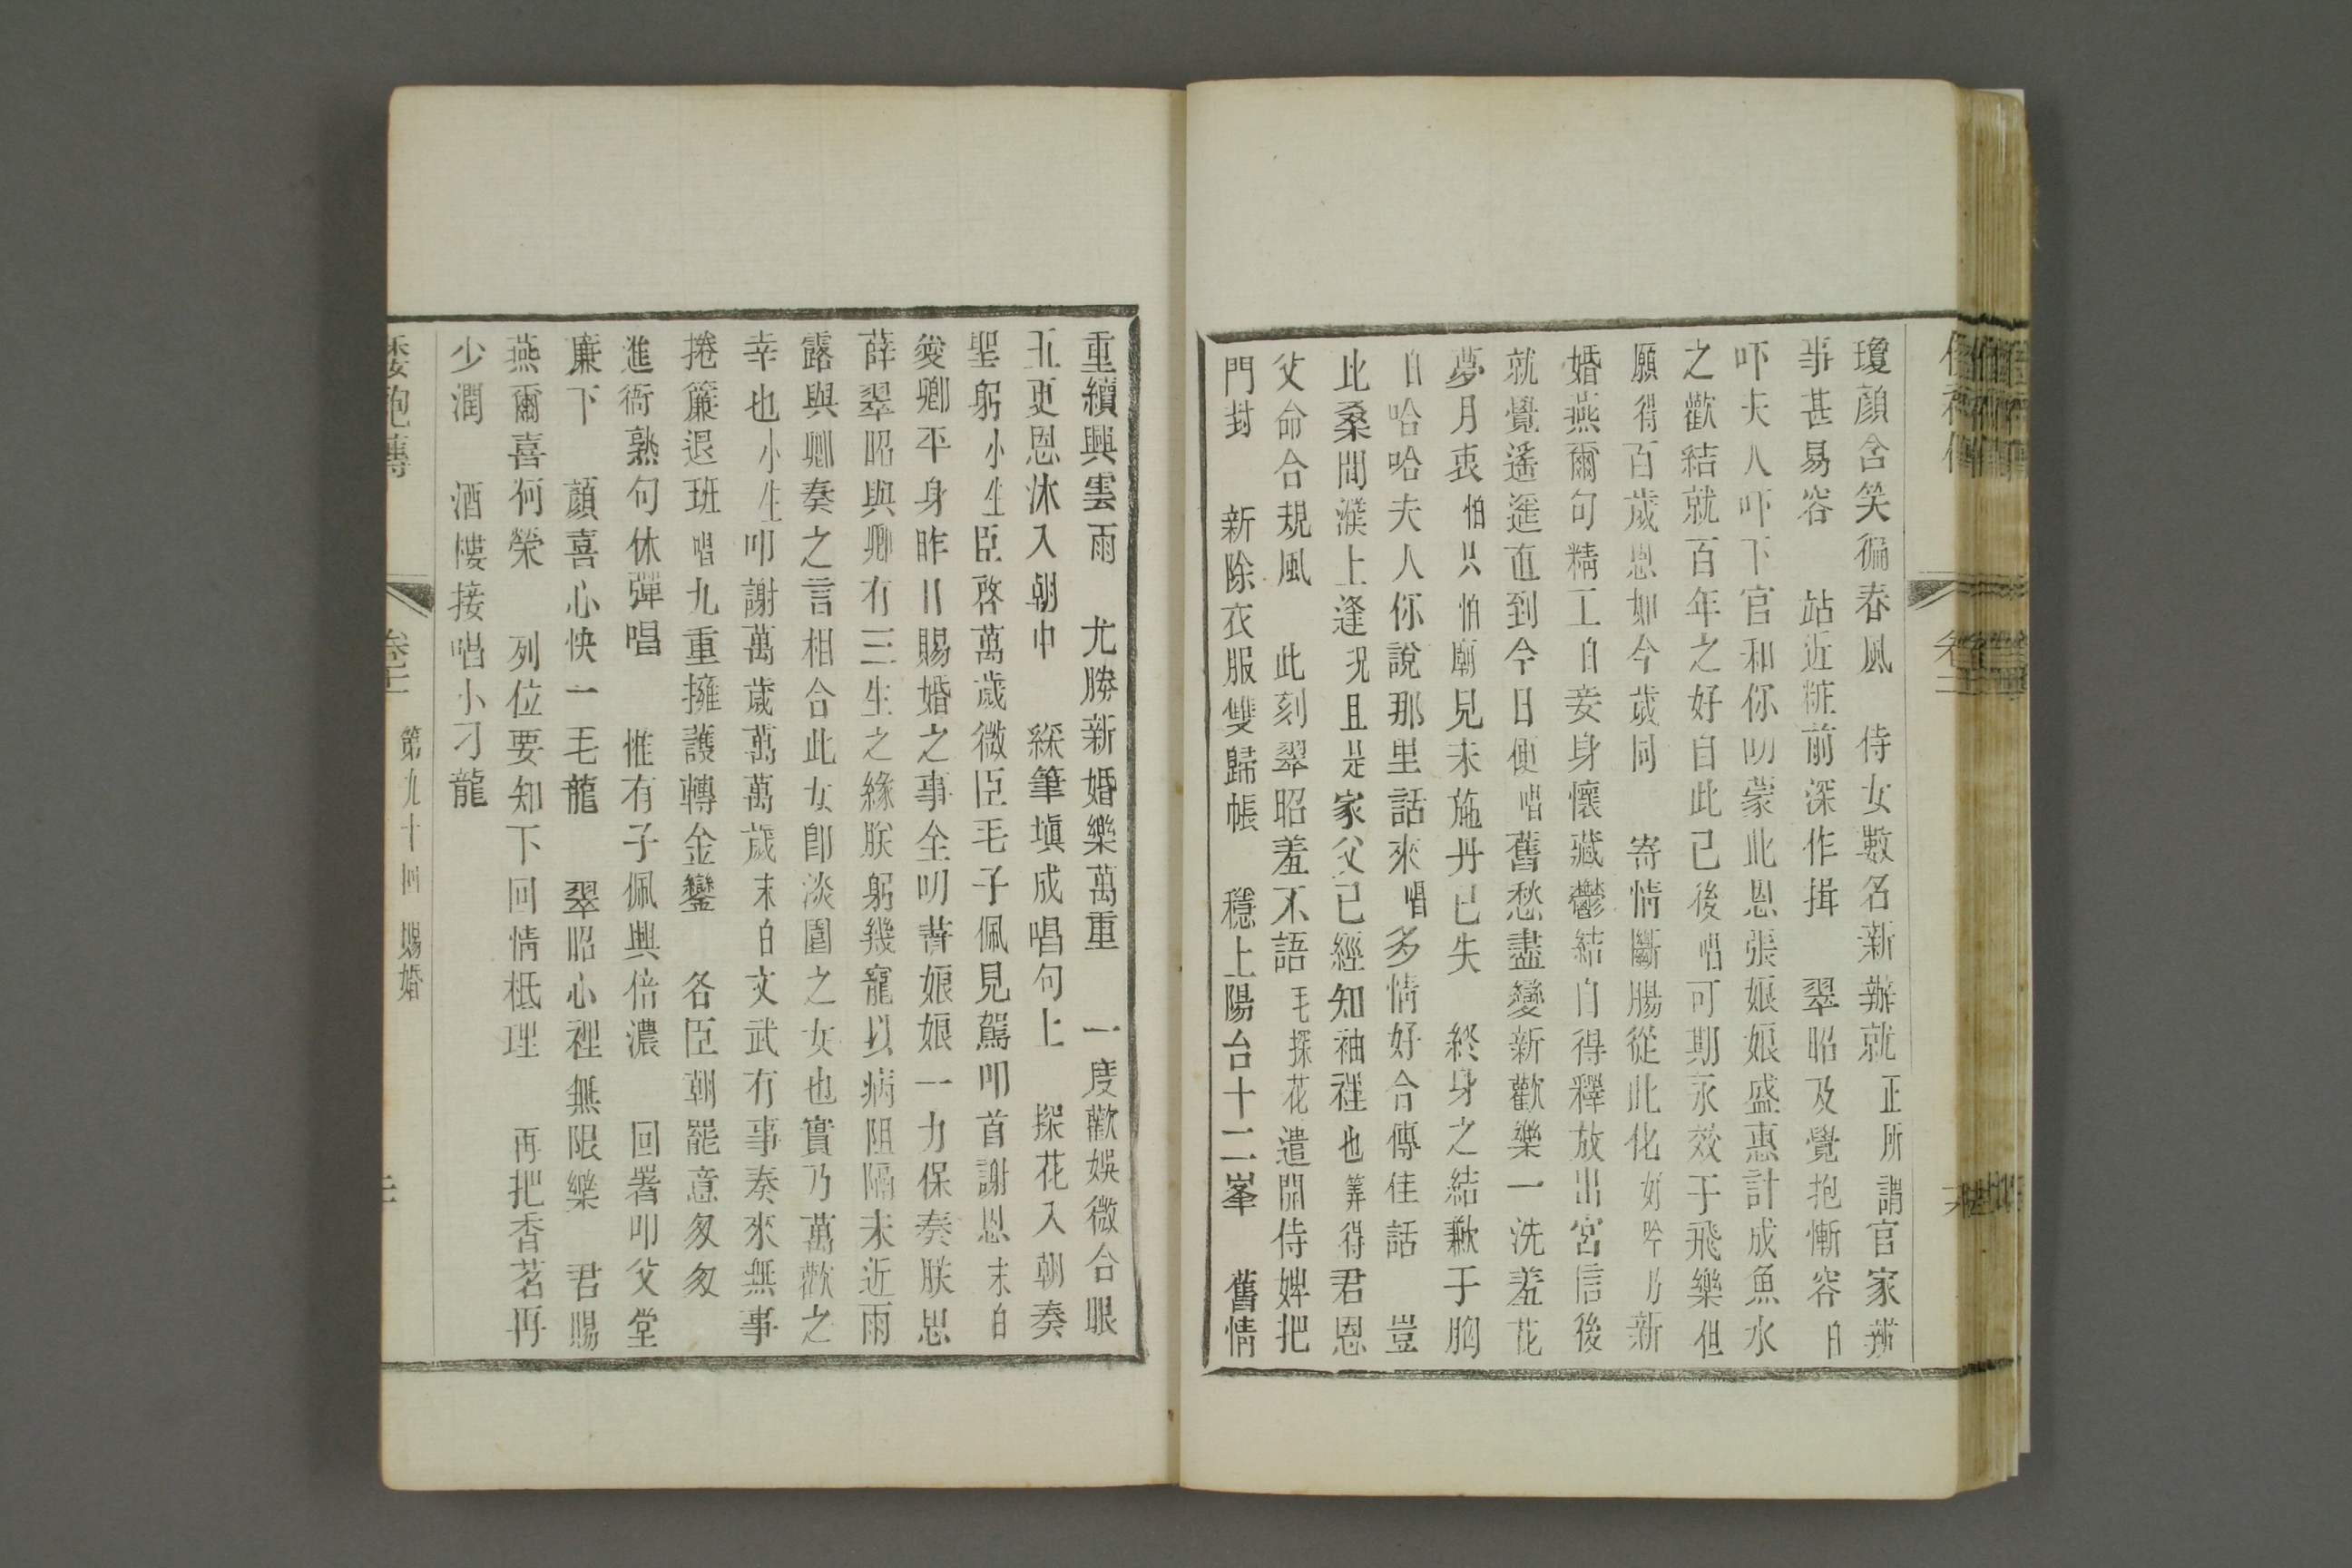 瓊顔含笑徧春風　侍女數名新辦就　正所謂官家辦
事甚易容　站近粧前深作揖　翠昭及覺抱慚容白
吓夫人吓下官和你叨蒙此恩張娘娘盛惠計成魚水
之歡結就百年之好自此已後唱可期永效于飛樂但
願得百歲恩如今歲同　寄情斷腸從此化好吟乃新
婚燕爾句精工自妾身懷藏鬱結自得釋放出宮信後
就覺遙遙直到今日便唱舊愁盡變新歡樂一洗羞花
夢月衷怕只怕廟見未施丹已失　終身之結歉于胸
白哈哈夫人你說那里話來唱多情好合傳佳話　豈
比桑間濮上逢況且是家父已經知袖裡也算得君恩
父命合規風　此刻翠昭羞不語毛探花遣開侍婢把
門封　新除衣服雙歸帳　穩上陽台十二峯　舊情
重續興雲雨　尤勝新婚樂萬重　一度歡娛微合眼
五更恩沐入朝中　綵筆塡成唱句上　探花入朝奏
聖躬小生臣啓萬歲微臣毛子佩見駕叩首謝恩末白
愛卿平身昨日賜婚之事全叨昔娘娘一力保奏朕思
薛翠昭與卿有三生之緣朕躬幾寵以病阻隔未近雨
露與卿奏之言相合此女卽淡園之女也實乃萬歡之
幸也小生叩謝萬歲萬萬歲末白文武有事奏來無事
捲簾退班唱九重擁護轉金鑾　各臣朝罷意匆匆
進衙熟句休彈唱　惟有子佩興倍濃　回署叩父堂
廉下　顔喜心快一毛龍　翠昭心裡無限樂　君賜
燕爾喜何榮　列位要知下回情柢理　再把香茗再
少潤　酒樓接唱小刁龍
倭袍傳
卷十二　第九十回　賜婚